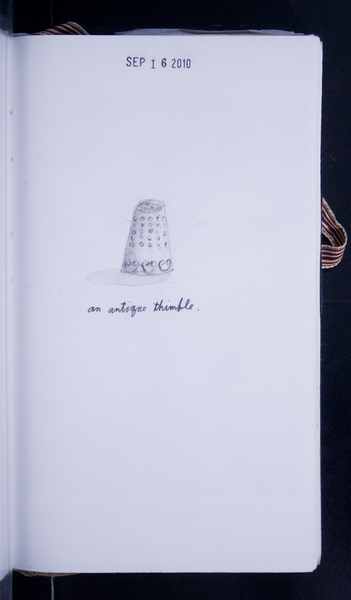 SEP 16 2010
an antique thimble.